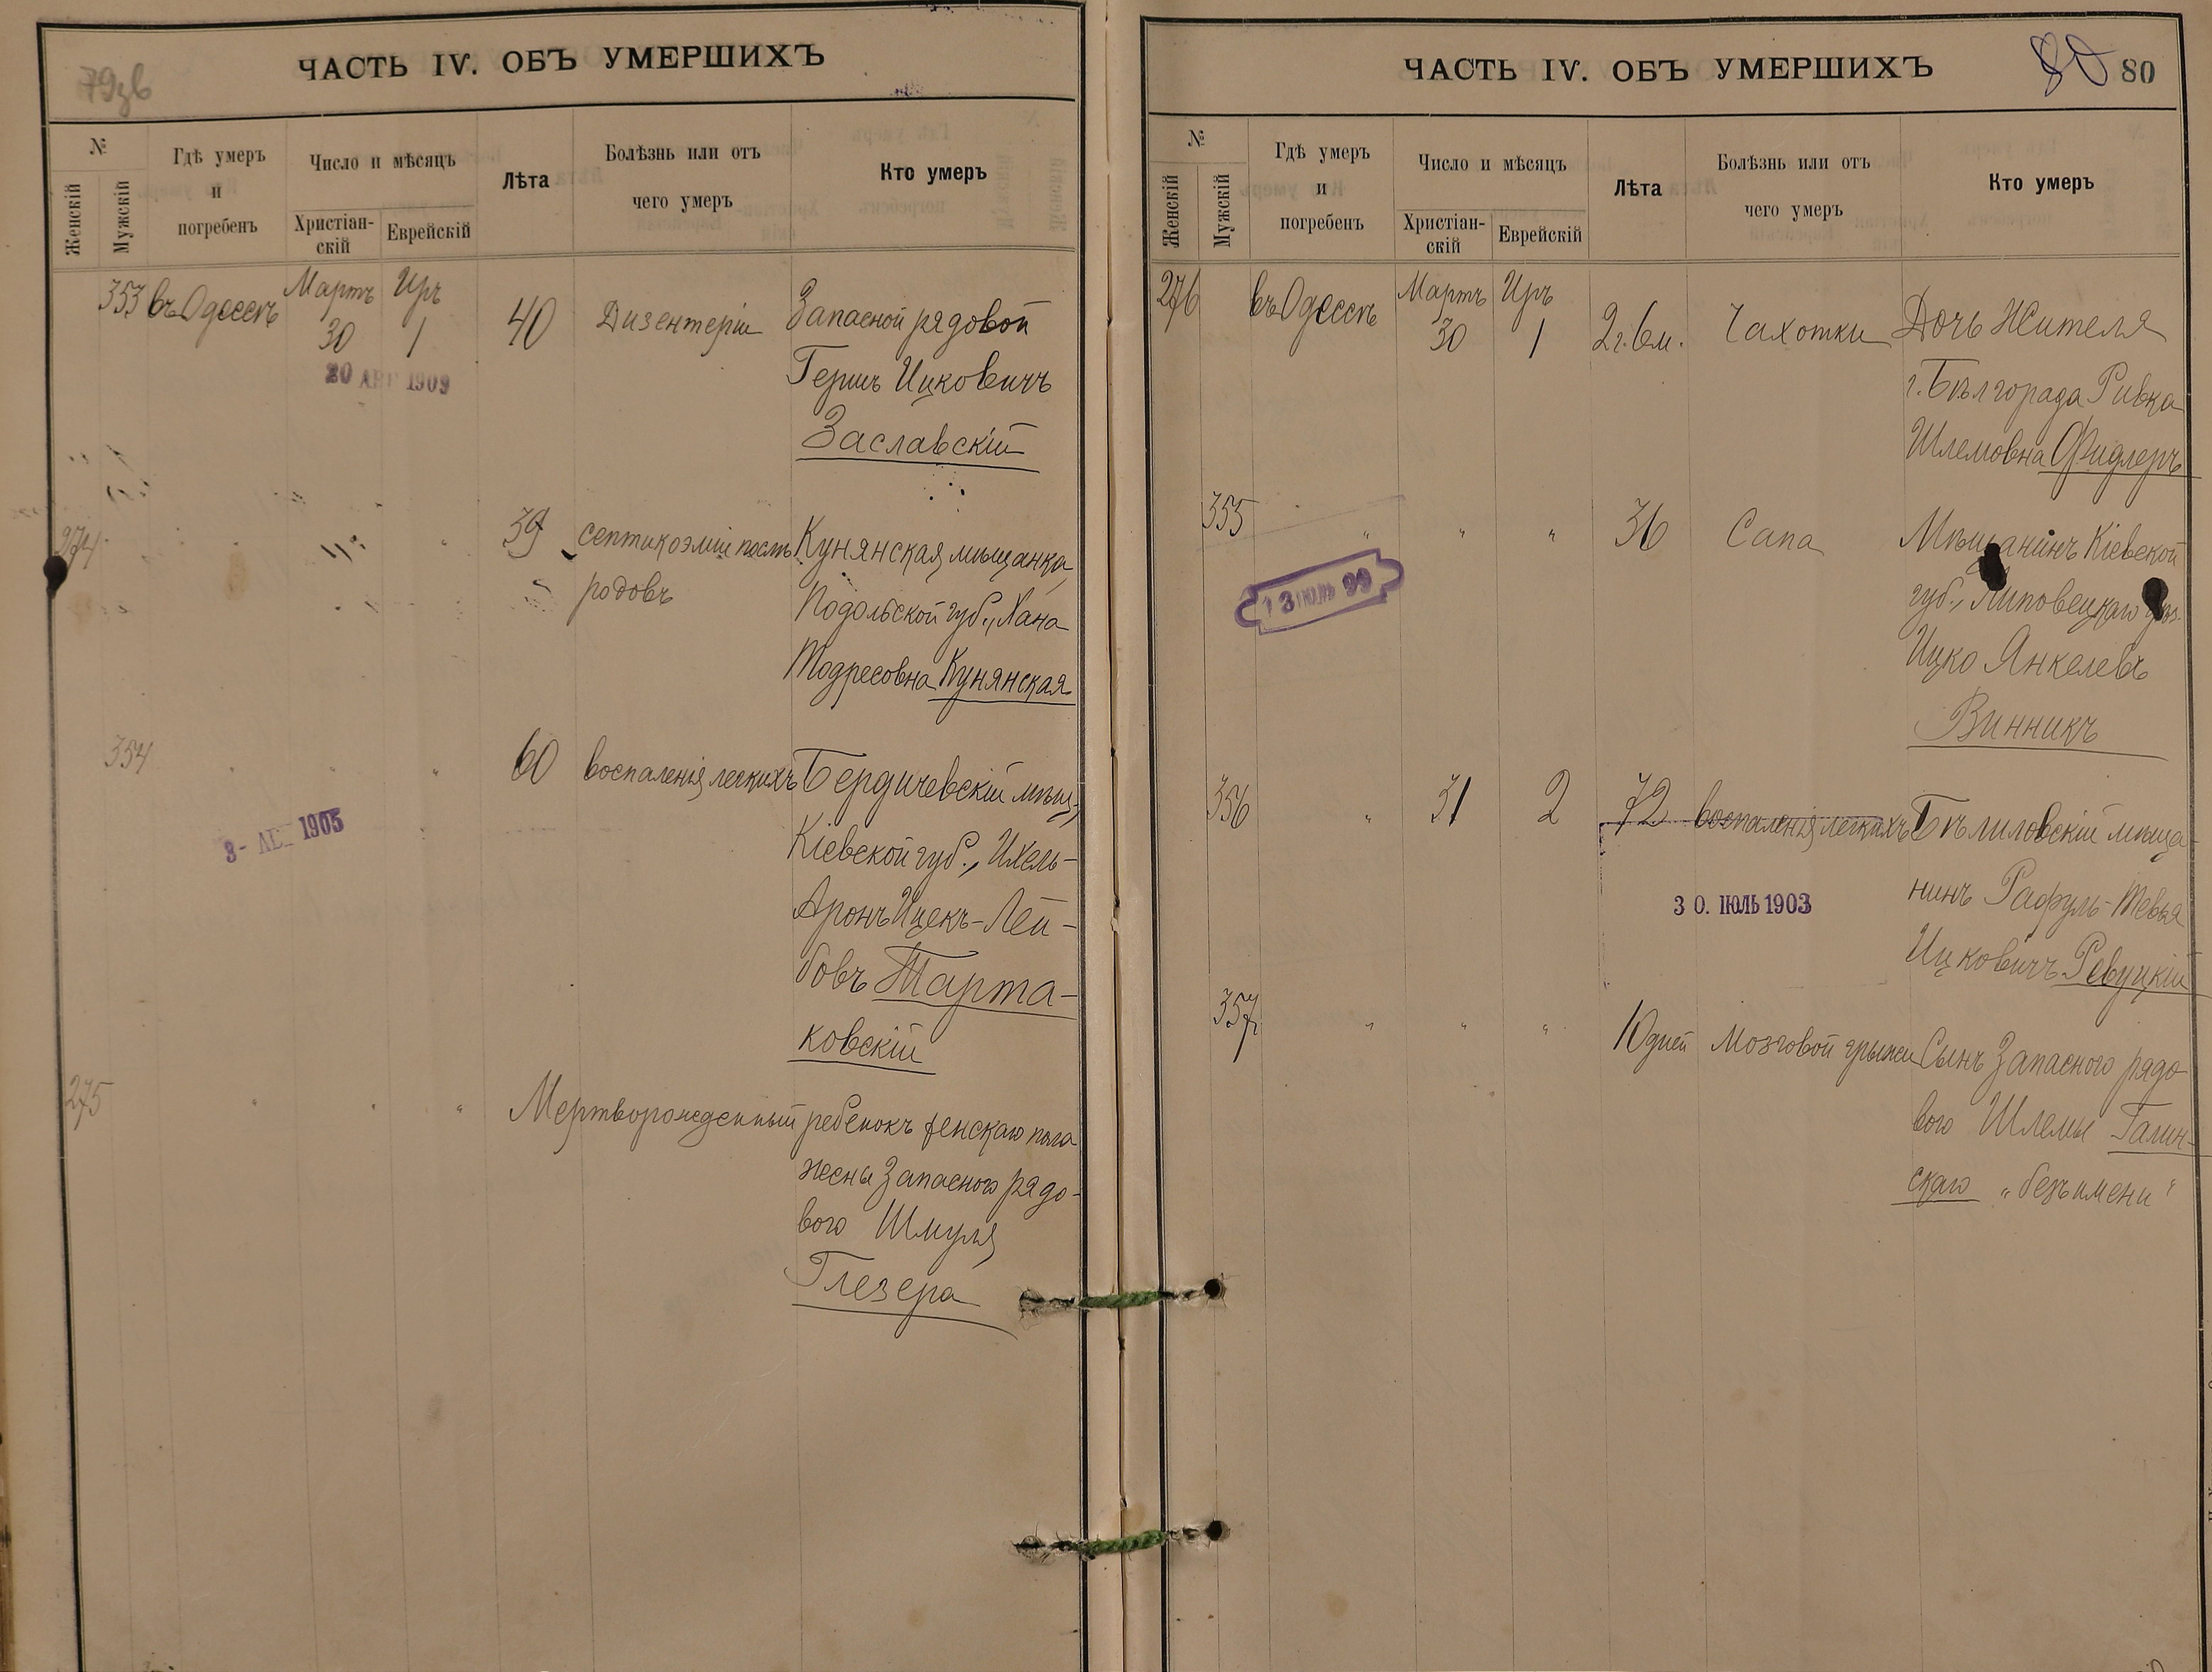 79зв
ЧАСТЬ IV. ОБЪ УМЕРШИХЪ
№
Женскій
Мужскій
Гдѣ умеръ
и
погребенъ
Число и мѣсяцъ
Христіан-
скій
Еврейскій
Лѣта
Болѣзнь или отъ
чего умеръ
Кто умеръ
353 въ Одессѣ Мартъ 30 Иръ 1 40 Дизентеріи Запасной рядовой
Гершъ Ицковичъ
Заславскій
1909
274 " " 39 септикоэміи послѣ Кунянская мѣщанка
родовъ Подольской губ., Хана
Тодресовна Кунянская
354 " " " 60 воспаленія легкихъ Бердичевскій мѣщ.,
Кіевской губ., Ихель-
Аронъ Ицекъ-Лей-
бовъ Тарта-
ковскій
1905
275 " " " Мертворожденный ребенокъ женскаго пола
жены Запаснаго рядо-
вого Шмуля
Глезера
ЧАСТЬ IV. ОБЪ УМЕРШИХЪ
80 80
№
Женскій
Мужскій
Гдѣ умеръ
и
погребенъ
Число и мѣсяцъ
Христіан-
скій
Еврейскій
Лѣта
Болѣзнь или отъ
чего умеръ
Кто умеръ
276 въ Одессѣ Мартъ 30 Иръ 1 2 г. 6 м. Чахотки Дочь Жителя
г. Бѣлгорада Ривка
Шлемовна Фидлеръ
355 " " " 36 Сапа Мѣщанинъ Кіевской
губ., Липовецкаго
Ицко Янкелевъ
Винникъ
13 ІЮЛЬ 99
356 " 31 2 72 воспаленія легкихъ Бѣлиловскій мѣща-
нинъ Рафуль-Тевья
Ицковичъ Ревуцкій
30. ІЮЛЬ 1903
357 " " " 10 дней Мозговой грыжи Сынъ Запаснаго рядо
вого Шлемы Галин-
скаго „безъ имени"